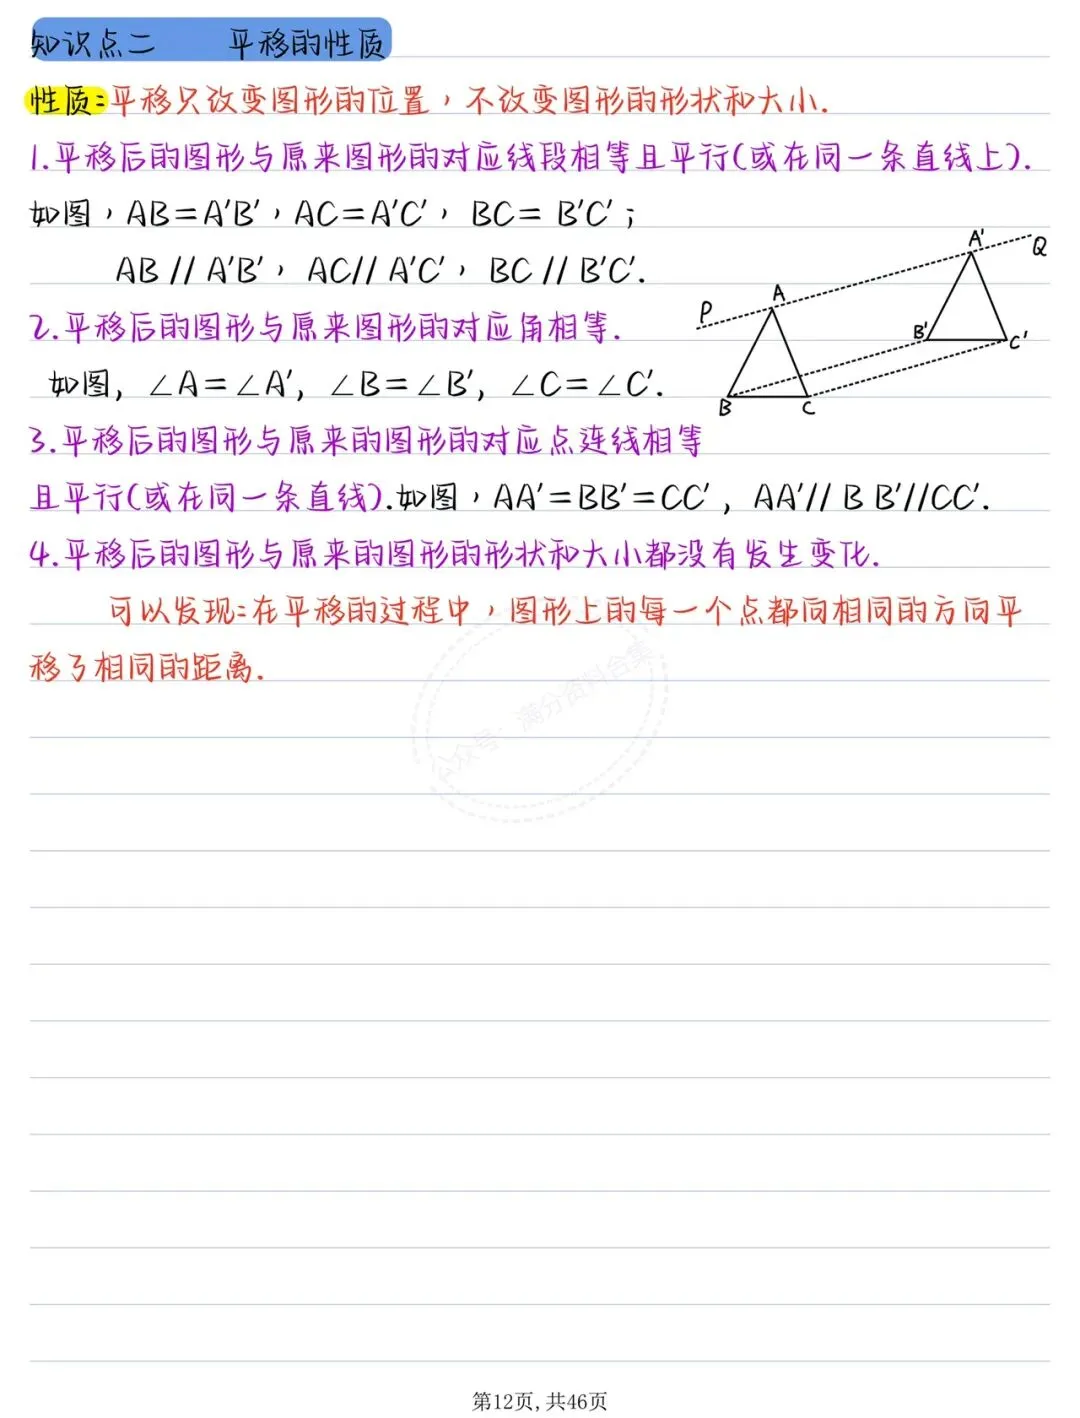 知识点二 平移的性质
性质:平移只改变图形的位置，不改变图形的形状和大小.
1.平移后的图形与原来图形的对应线段相等且平行(或在同一条直线上).
如图，AB=A′B′，AC=A′C′，BC= B′C′；
AB // A′B′，AC// A′C′，BC // B′C′.
2.平移后的图形与原来图形的对应角相等.
如图, ∠A=∠A′, ∠B=∠B′, ∠C=∠C′.
3.平移后的图形与原来的图形的对应点连线相等
且平行(或在同一条直线).如图，AA′=BB′=CC′, AA′// B B′//CC′.
4.平移后的图形与原来的图形的形状和大小都没有发生变化.
可以发现:在平移的过程中，图形上的每一个点都向相同的方向平
移了相同的距离.
P
A
B
C
A′
Q
B′
C′
公众号：满分资料合集
第12页, 共46页